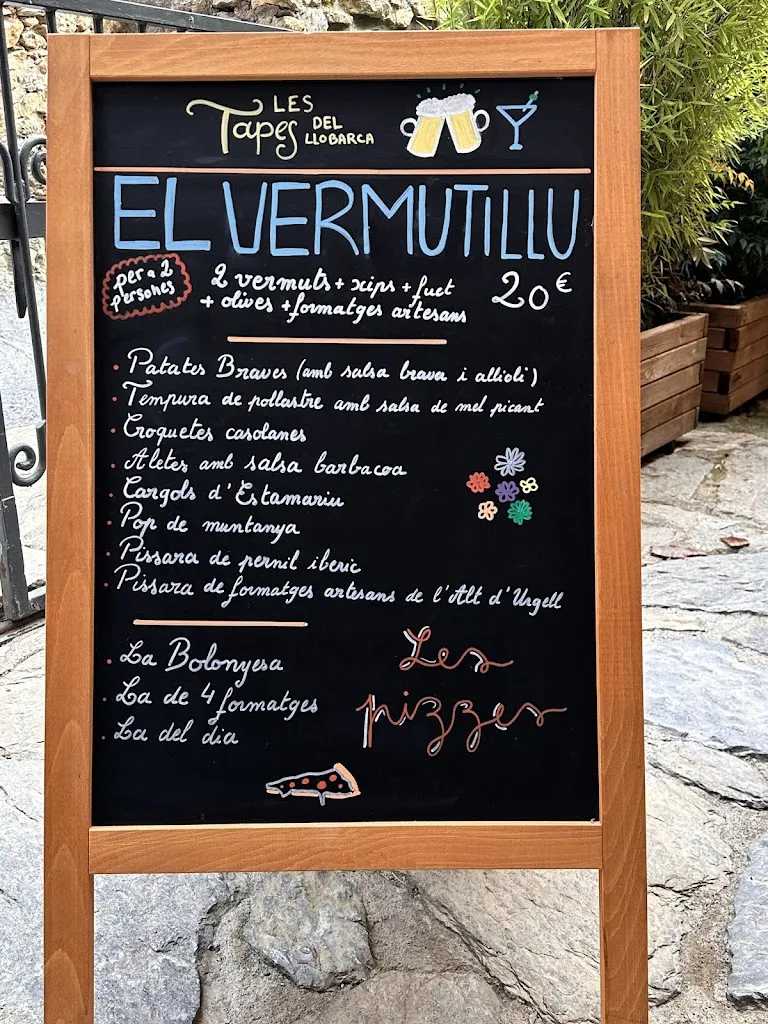 LES
Tapes DEL
LLOBARCA
EL VERMUTILLU
per a 2
persones
2 vermuts + xips + fuet
+ olives + formatges artesans
20€
Patates Braves (amb salsa brava i allioli)
Tempura de pollastre amb salsa de mel picant
Croquetes casolanes
Aletes amb salsa barbacoa
Cargols d'Estamariu
Pop de muntanya
Pissara de pernil iberic
Pissara de formatges artesans de l'Alt d'Urgell
Les
pizzes
La Bolonyesa
La de 4 formatges
La del dia